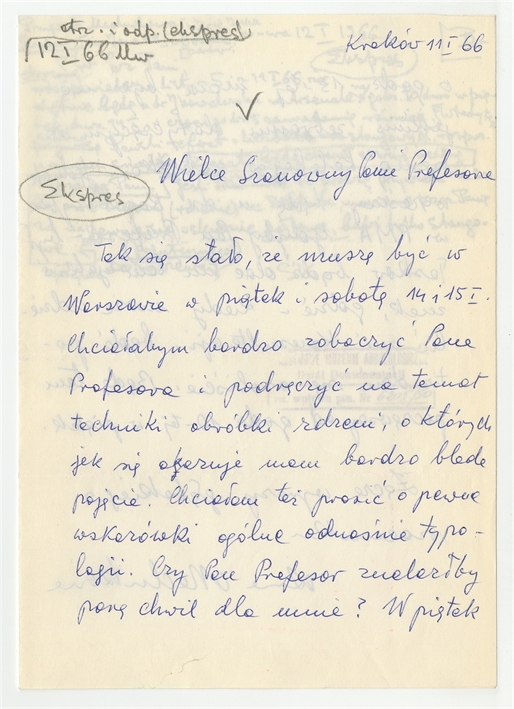 otrz. i odp. (ekspres)
12 I 66 Mw
Kraków 11 I 66
Ekspres
Wielce Szanowny Panie Profesorze
Tak się stało, że muszę być w
Warszawie w piątek i sobotę 14 i 15 I.
Chciałabym bardzo zobaczyć Pana
Profesora i podręczyć na temat
techniki obróbki rdzeni, o których
jak się okazuje mam bardzo blade
pojęcie. Chciałam też prosić o pewne
wskazówki ogólne odnośnie typo-
logii. Czy Pan Profesor znalazłby
parę chwil dla mnie? W piątek